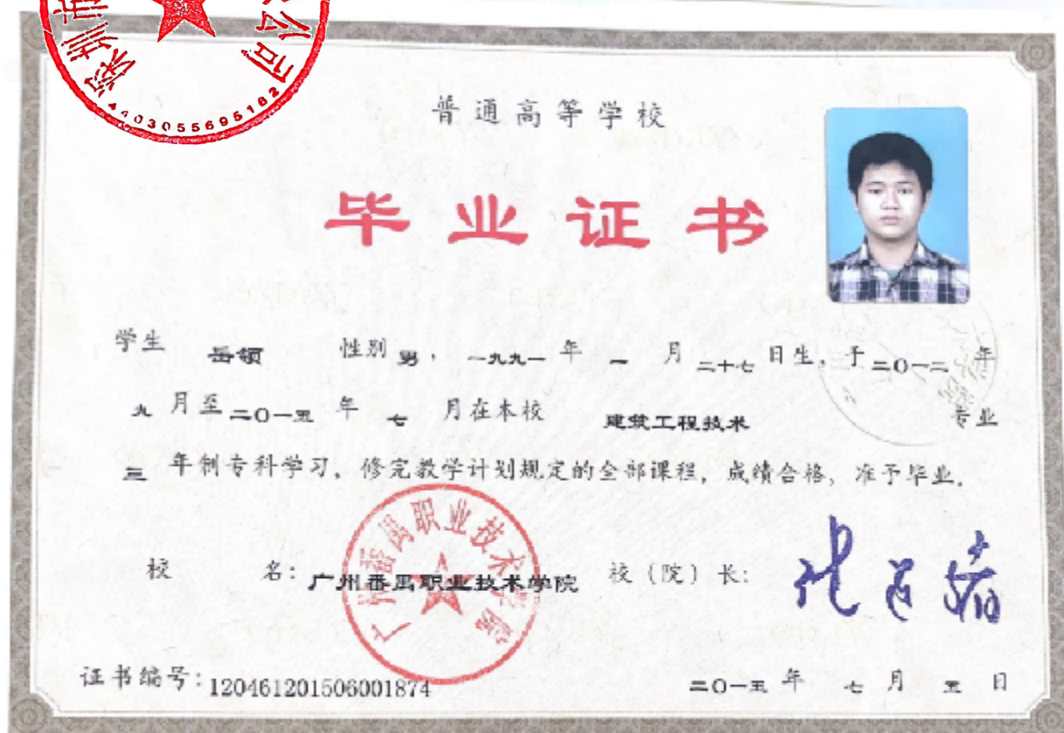 深圳市
公司
4403055695182
普通高等学校
毕业证书
学生 岳领 性别 男，一九九一年 一 月 二十七 日生，于 二〇一二 年
九 月至 二〇一五 年 七 月在本校 建筑工程技术 专业
三 年制专科学习，修完教学计划规定的全部课程，成绩合格，准予毕业。
校 名：广州番禺职业技术学院 校（院）长：
广州番禺职业技术学院
证书编号：120461201506001874 二〇一五 年 七 月 五 日